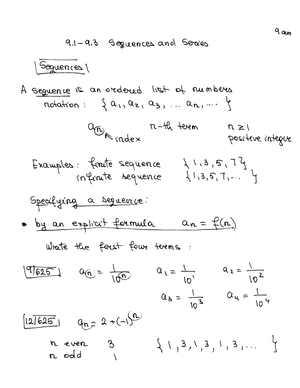 9 am
9.1-9.3 Sequences and Series
Sequences
A sequence is an ordered list of numbers
notation : { a₁, a₂, a₃, ... aₙ, .... }
aₙ n-th term n ≥ 1
index positive integer
Examples : finite sequence { 1, 3, 5, 7 }
infinite sequence { 1, 3, 5, 7, ... }
Specifying a sequence :
• by an explicit formula aₙ = f(n)
Write the first four terms :
9/625 aₙ = 1/10ⁿ a₁ = 1/10¹ a₂ = 1/10²
a₃ = 1/10³ a₄ = 1/10⁴
12/625 aₙ = 2 + (-1)ⁿ
n even 3 { 1, 3, 1, 3, 1, 3, ... }
n odd 1